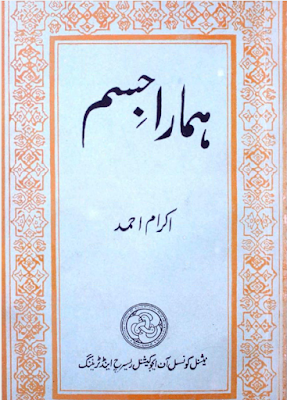 ہمارا جسم
اکرام احمد
نیشنل کونسل آف ایجوکیشنل ریسرچ اینڈ ٹریننگ